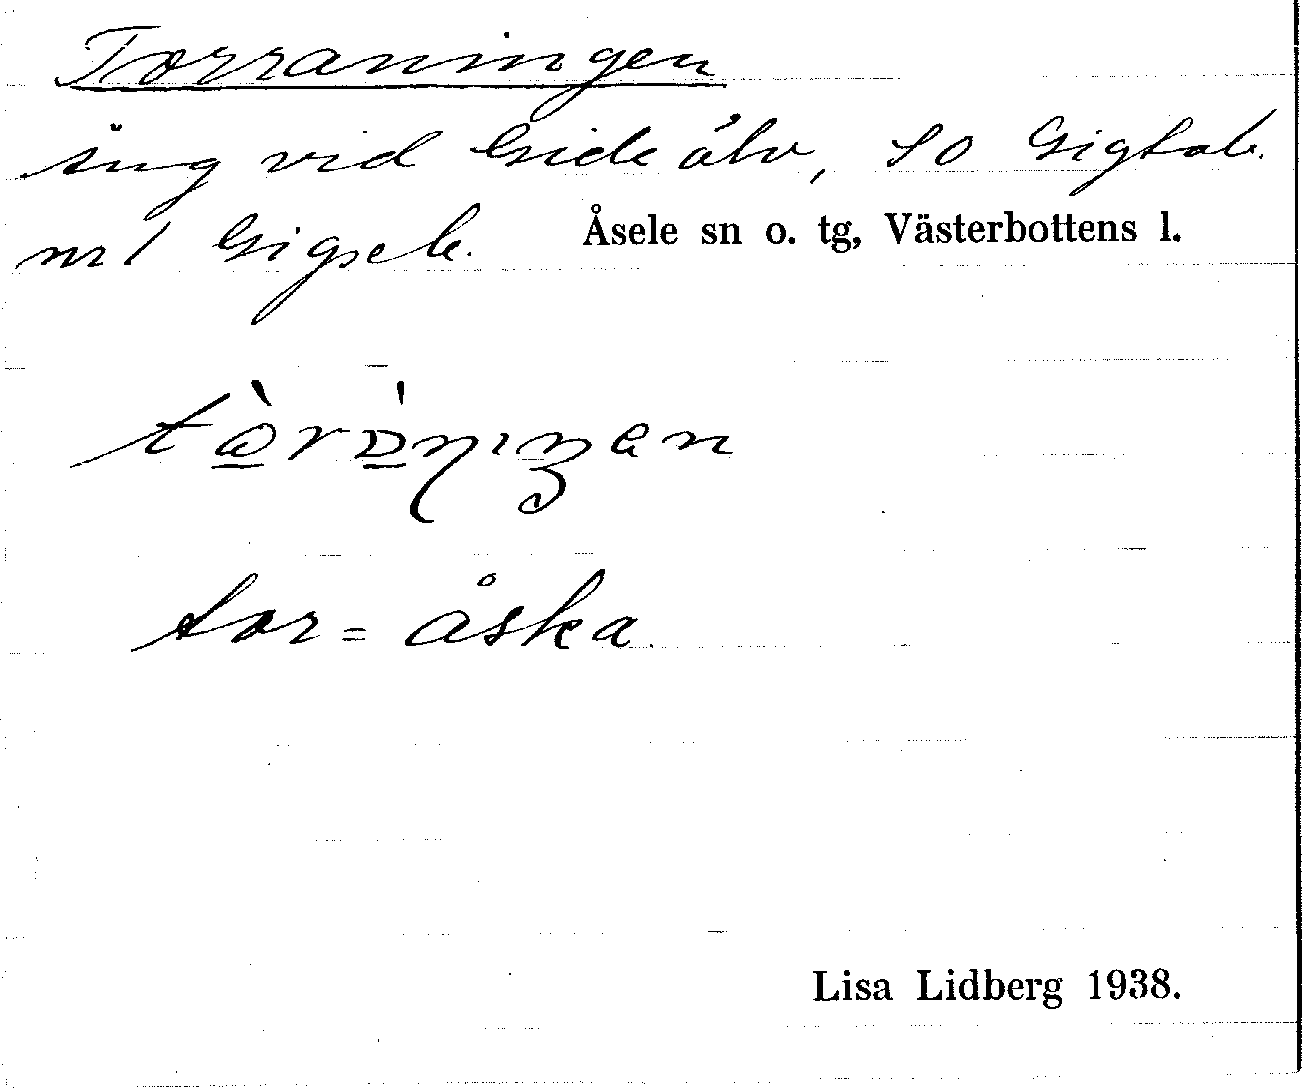 Torraningen
äng vid Gide älv, SO Gigsele
nr 1 Gigsele. Åsele sn o. tg, Västerbottens l.
tor = åska.
Lisa Lidberg 1938.